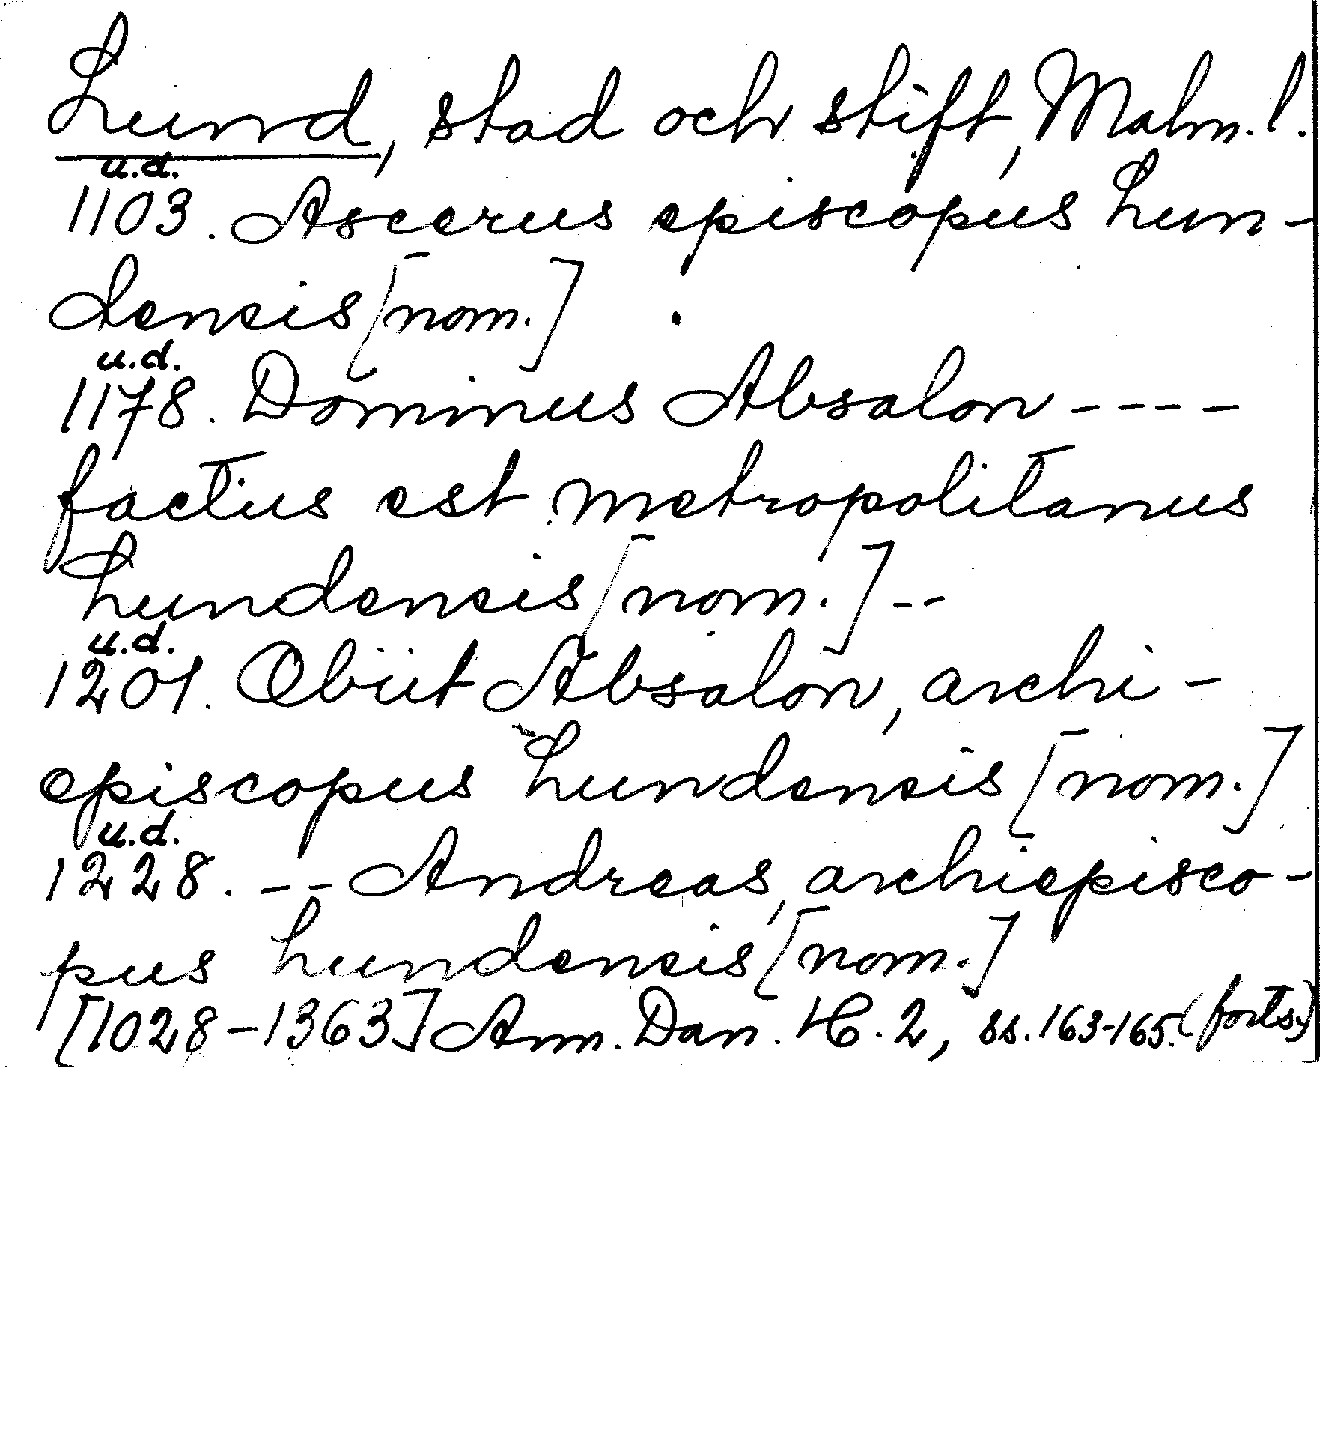 Lund, stad och stift, Malm. l.
u.d.
1103. Ascerus episcopus Lun-
densis [nom.]
u.d.
1178. Dominus Absalon ----
factus est metropolitanus
Lundensis [nom.] --
u.d.
1201. Obiit Absalon, archi-
episcopus Lundensis [nom.]
u.d.
1228. -- Andreas, archiepisco-
pus Lundensis [nom.]
[1028-1363] Ann. Dan. H. 2, ss. 163-165. (forts.)